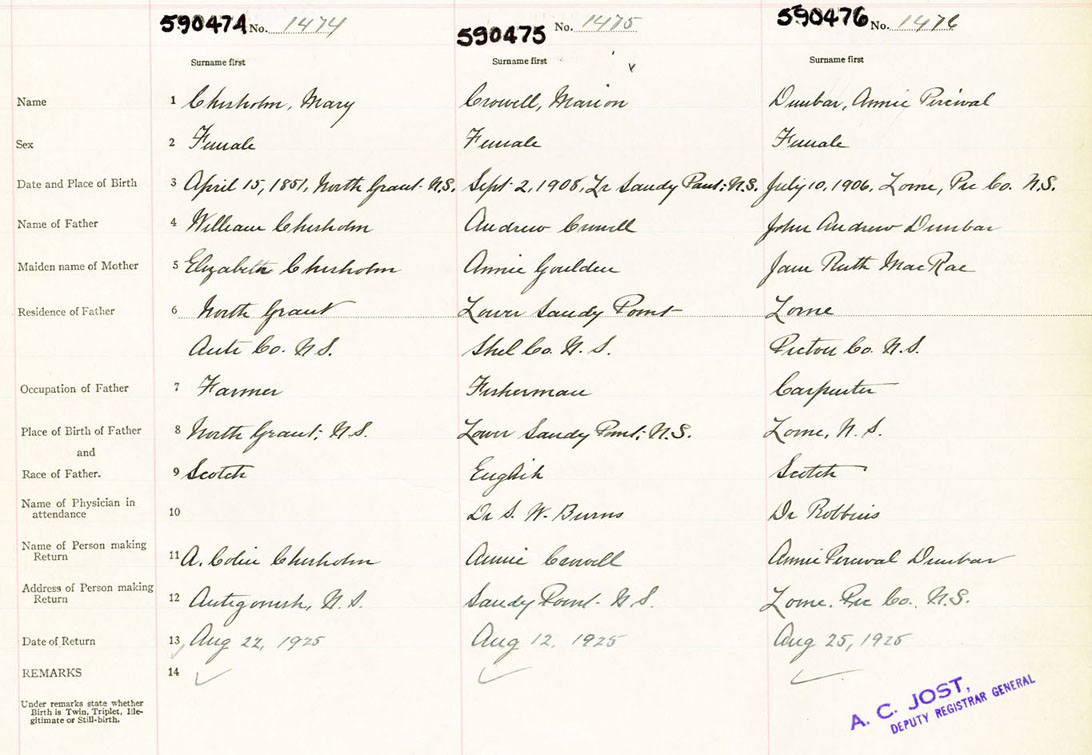 590474 No. 1474 590475 No. 1475 590476 No. 1476
Surname first Surname first Surname first
Name 1 Chisholm, Mary Crowell, Marion Dunbar, Annie Percival
Sex 2 Female Female Female
Date and Place of Birth 3 April 15, 1851, North Grant N.S. Sept 2, 1908, Lr Sandy Point, N.S. July 10, 1906, Lorne, Pic Co. N.S.
Name of Father 4 William Chisholm Andrew Crowell John Andrew Dunbar
Maiden name of Mother 5 Elizabeth Chisholm Annie Goulden Jane Ruth MacRae
Residence of Father 6 North Grant Lower Sandy Point Lorne
Anti Co. N.S. Shel Co. N.S. Pictou Co. N.S.
Occupation of Father 7 Farmer Fisherman Carpenter
Place of Birth of Father 8 North Grant, N.S. Lower Sandy Point, N.S. Lorne, N.S.
and
Race of Father. 9 Scotch English Scotch
Name of Physician in
attendance 10 Dr S. W. Burns Dr Robbins
Name of Person making
Return 11 A. Colin Chisholm Annie Crowell Annie Percival Dunbar
Address of Person making
Return 12 Antigonish, N.S. Sandy Point N.S. Lorne, Pic Co. N.S.
Date of Return 13 Aug 22, 1925 Aug 12, 1925 Aug 25, 1925
REMARKS 14
Under remarks state whether
Birth is Twin, Triplet, Ille-
gitimate or Still-birth.
A. C. JOST,
DEPUTY REGISTRAR GENERAL